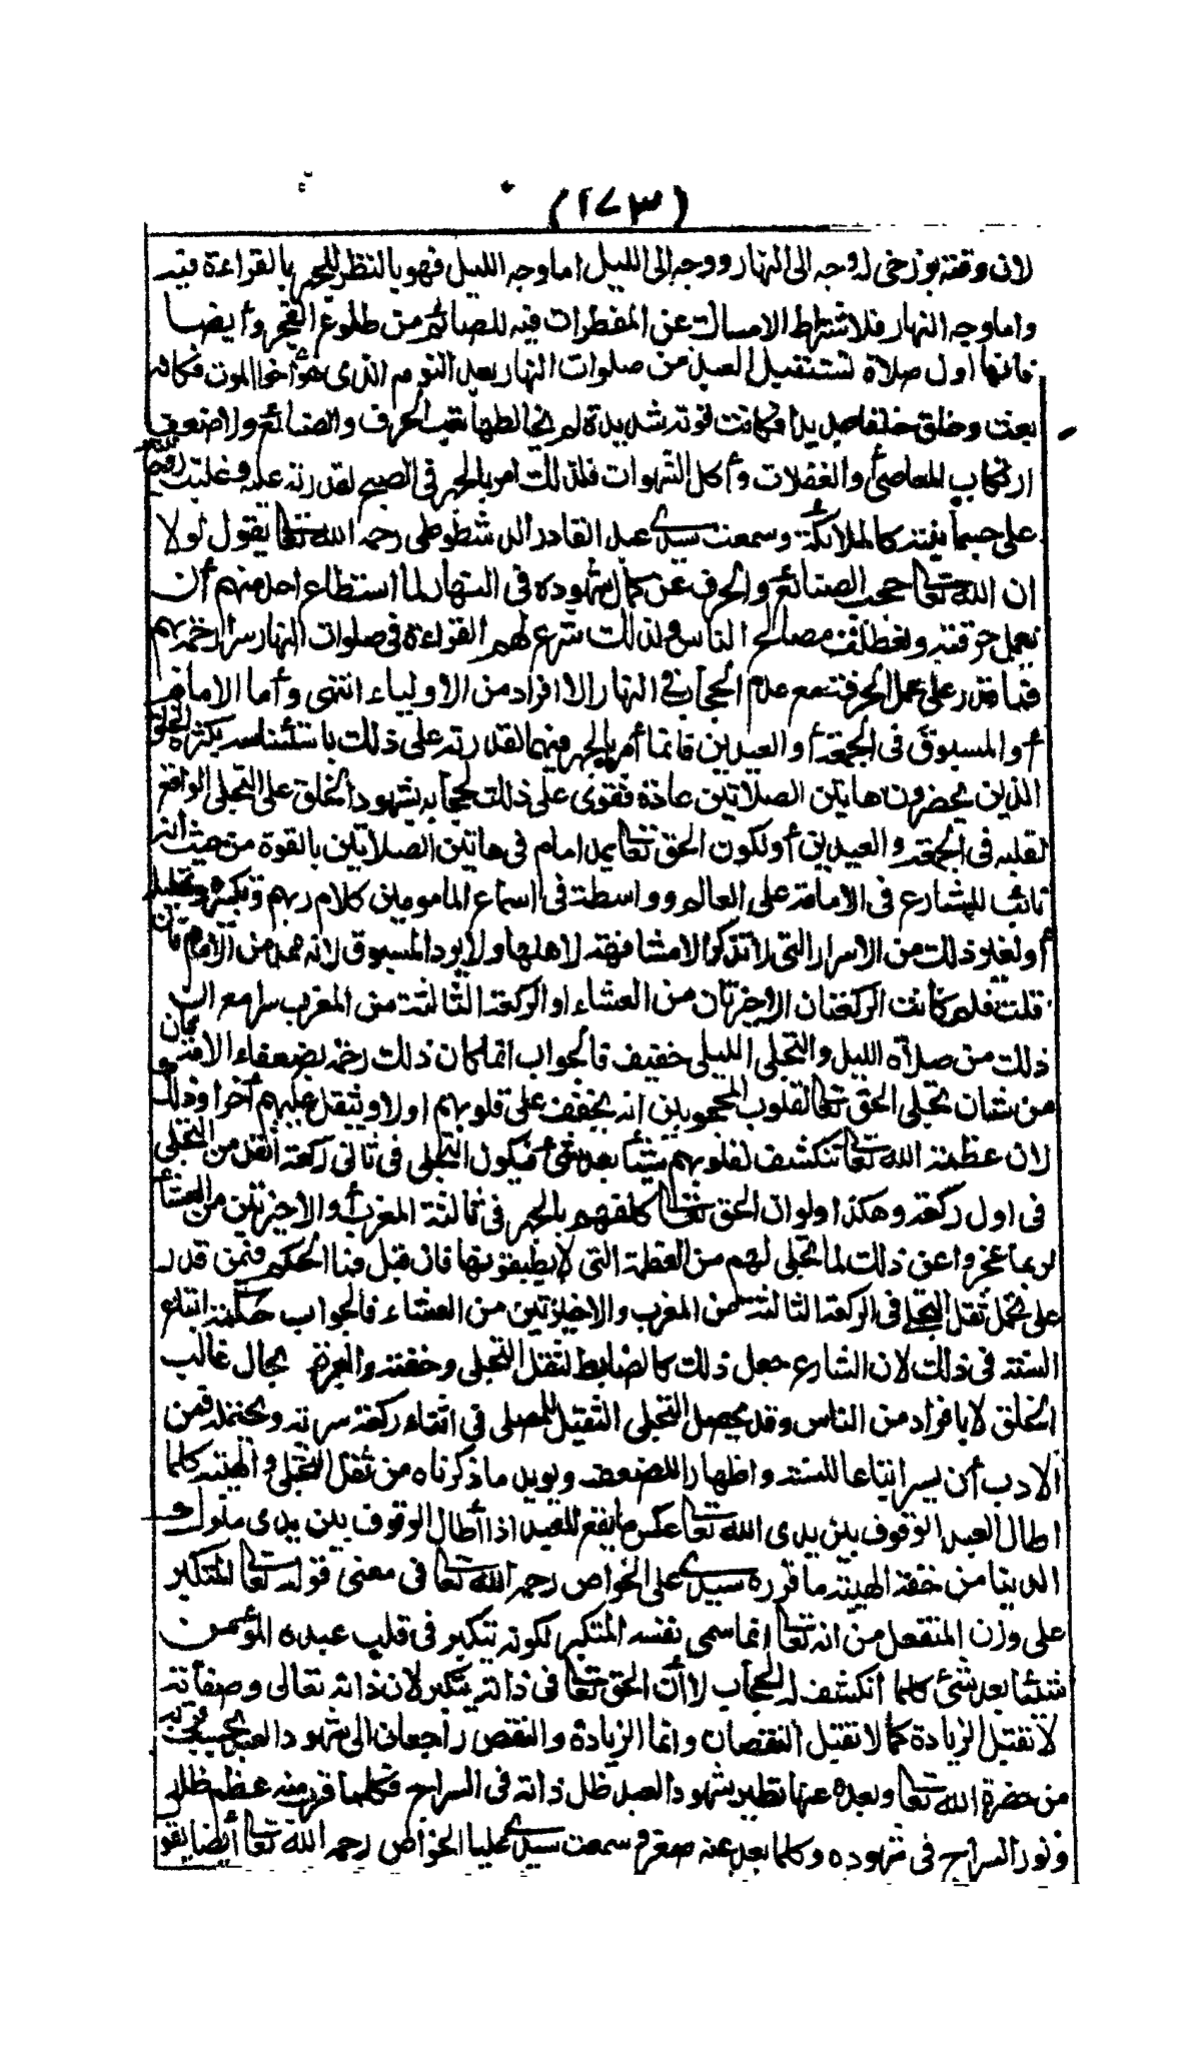 (١٧٣)
لان وقته برزخى له وجه الى النهار ووجه إلى الليل اما وجه الليل فهو بالنظر للجهر بالقراءة فيه
واما وجه النهار فلاشتراط الامساك عن المفطرات فيه للصائم من طلوع الفجر وأيضا
فانها اول صلاة تستقبل العبد من صلوات النهار بعد النوم الذى هو أخوا الموت فكانه
بعث وخلق خلقا جديدا فكانت قوته شديدة لم يخالطها تعب الحرف والصنائع ولا ضعف
ارتكاب المعاصى والغفلات وأكل الشهوات فلذلك امر بالجهر فى الصبح لقدرته عليه وغلبت روحانيته
على جسمانيته كالملائكة وسمعت سيدى عبد القادر الدشطوطى رحمه الله تعالى يقول لولا
ان الله تعالى حجب الصنائع والحرف عن كمال شهوده فى النهار لما استطاع احد منهم أن
يعمل حرفته ولعطلت مصالح الناس ولذلك شرع لهم القراءة فى صلوات النهار سرا رحمة بهم
فما قدر على عمل الحرفة مع عدم الحجاب فى النهار الا افراد من الاولياء انتهى وأما الامام
أو المسبوق فى الجمعة أو العيدين فانما أمر بالجهر فيهما لقدرته على ذلك باستئناسه بكثرة الخلق
الذين يحضرون هاتين الصلاتين عادة فقوى على ذلك لحجابه بشهود الخلق على التجلى الواقع
لقلبه فى الجمعة والعيدين أو لكون الحق تعالى يمد امام فى هاتين الصلاتين بالقوة من حيث انه
نائب للشارع فى الامامة على العالم وواسطة فى اسماع المأمومين كلام ربهم وتكبيره وتحميده
أو لغير ذلك من الاسرار التى لا تذكر الا مشافهة لاهلها ولا يرد المسبوق لانه ممد من الامام فان
قلت فلم كانت الركعتان الاخيرتان من العشاء او الركعة الثالثة من المغرب سرا مع ان
ذلك من صلاة الليل والتجلى الليلى خفيف فالجواب انما كان ذلك رحمة بضعفاء الامة فان
من شان تجلى الحق تعالى لقلوب المحجوبين انه يخفف على قلوبهم اولا ويثقل عليهم آخرا وذلك
لان عظمة الله تعالى تنكشف لقلوبهم شيئا بعد شئ فيكون التجلى فى ثانى ركعة أثقل من التجلى
فى اول ركعة وهكذا ولو ان الحق تعالى كلفهم بالجهر فى ثالثة المغرب والاخيرتين من العشاء
لربما عجزوا عن ذلك لما تجلى لهم من العظمة التى لا يطيقونها فان قيل فما الحكم فيمن قدر
على تحمل ثقل التجلى فى الركعة الثالثة من المغرب والاخيرتين من العشاء فالجواب حكمه اتباع
السنة فى ذلك لان الشارع جعل ذلك كالضابط لثقل التجلى وخفته والعبرة بحال غالب
الخلق لا بافراد من الناس وقد يحصل التجلى الثقيل للمصلى فى اثناء ركعة سرته ويحتمله فمن
الادب أن يسر اتباعا للسنة واظهارا للضعف ويويد ما ذكرناه من ثقل التجلى والهيبة كلما
اطال العبد الوقوف بين يدى الله تعالى عكس ما يقع للعبد اذا أطال الوقوف بين يدى ملوك
الدينا من خفة الهيبة ما قرره سيدى على الخواص رحمه الله تعالى فى معنى قوله تعالى المتكبر
على وزن المتفعل من انه تعالى انما سمى نفسه المتكبر لكونه يتكبر فى قلب عبده المؤمن
شيئا بعد شئ كلما انكشف له الحجاب لا أن الحق تعالى فى ذاته يتكبر لان ذاته تعالى وصفاته
لا تقبل الزيادة كما لا تقبل النقصان وانما الزيادة والنقص راجعان الى شهود العبد بحسب قربه
من حضرة الله تعالى وبعده عنها نظير شهود العبد ظل ذاته فى السراج فكلما قرب منه عظم ظله
ونور السراج فى شهوده وكلما بعد عنه صغر وسمعت سيدى عليا الخواص رحمه الله تعالى أيضا يقو